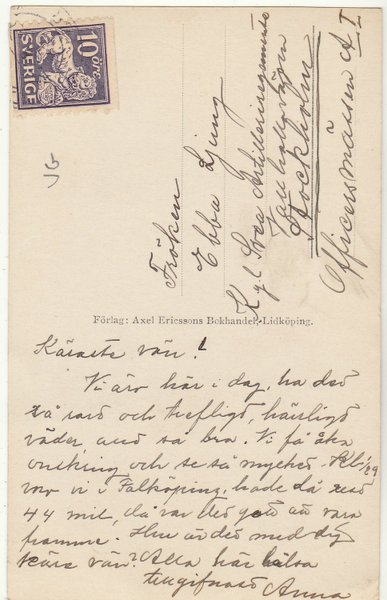 10 öre
SVERIGE
JG
Fröken
Ebba Ljung
Kgl Svea Artilleriregimente
Valhallavägen
Stockholm
Officersmässen A I
Förlag: Axel Ericssons Bokhandel, Lidköping.
Käraste vän!
Vi äro här i dag, ha det
så rart och trefligt, härligt
väder, and så bra. Vi få åka
omkring och se så mycket. Kl. 1/29
voro vi i Falköping, hade då rest
44 mil, då var det gott att vara
framme. Hur är det med dig
kära vän? Alla här hälsa
tillgifnast Anna